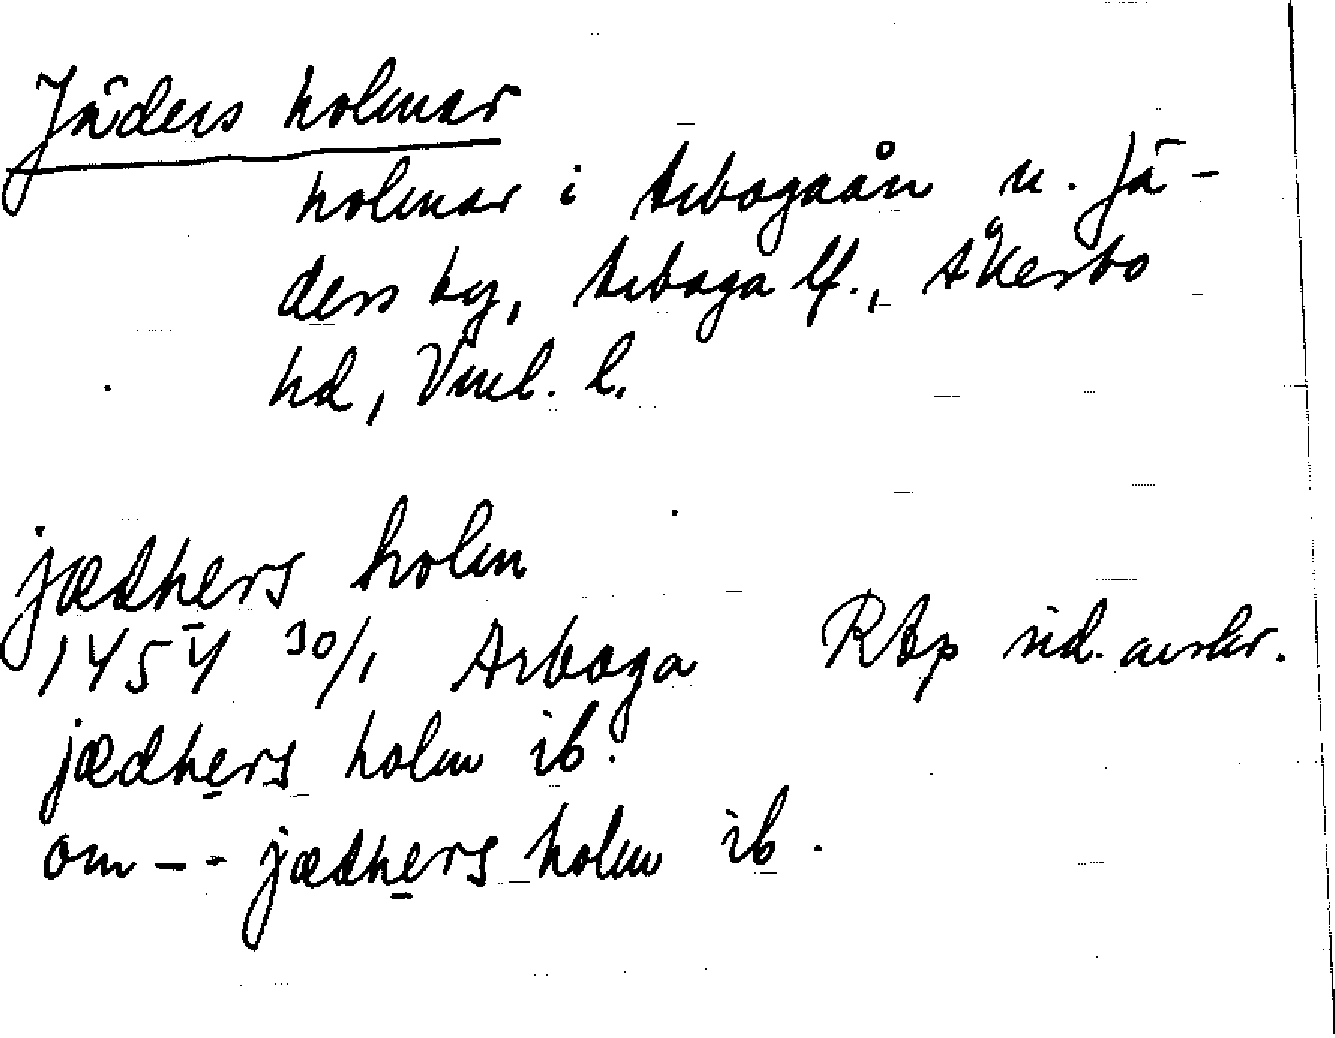 Jäders holmar
holmar i Arbogaån u. Jä-
ders by, Arboga lf., Åkerbo
hd, Vml. l.
jædhers holm
1454 30/1 Arboga RAp sid. avskr.
jædhers holm ib.
om -- jædhers holm ib.